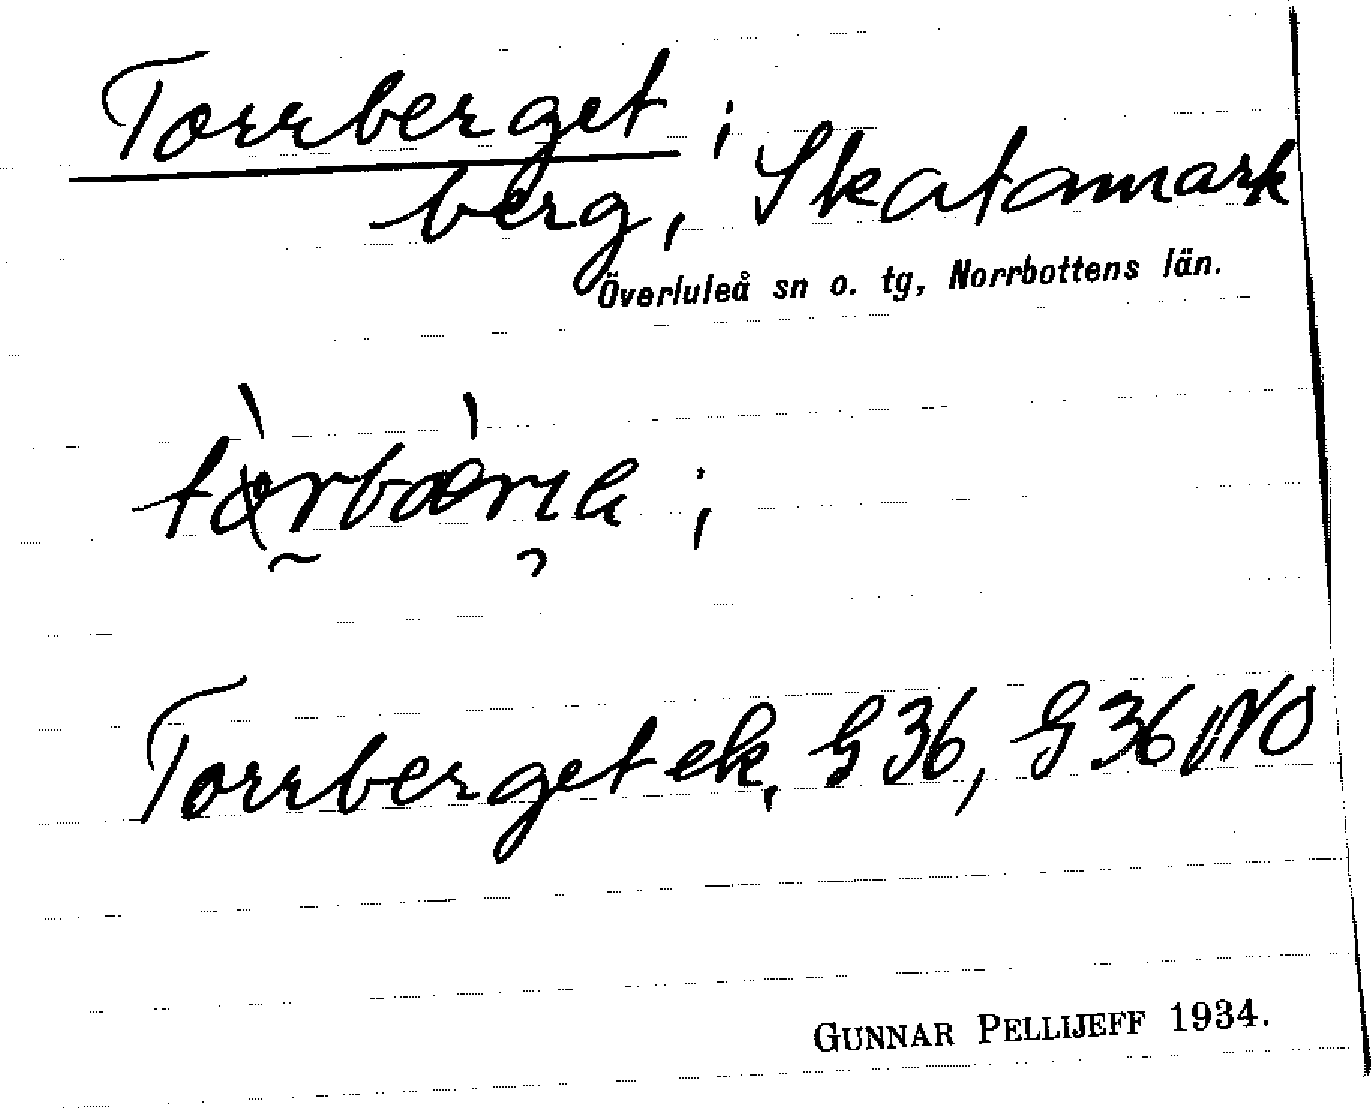 Torrberget ;
berg, Skatamark
Överluleå sn o. tg, Norrbottens län.
Torrberget ek, G 36, G 36 NO
GUNNAR PELLIJEFF 1934.